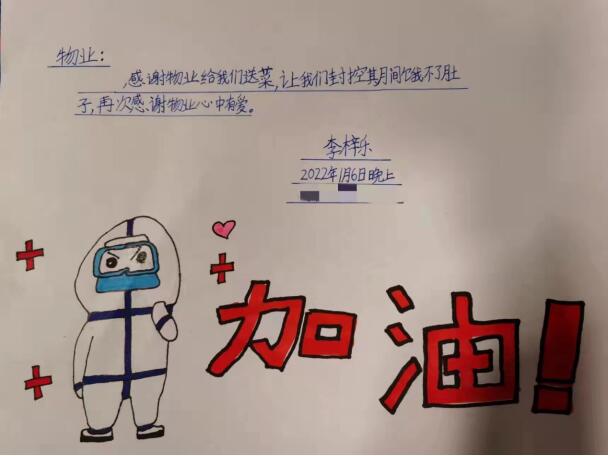 物业：
感谢物业给我们送菜，让我们封控其月间饿我不了肚
子，再次感谢物业心中有爱。
李梓乐
2022年1月6日晚上
加油！